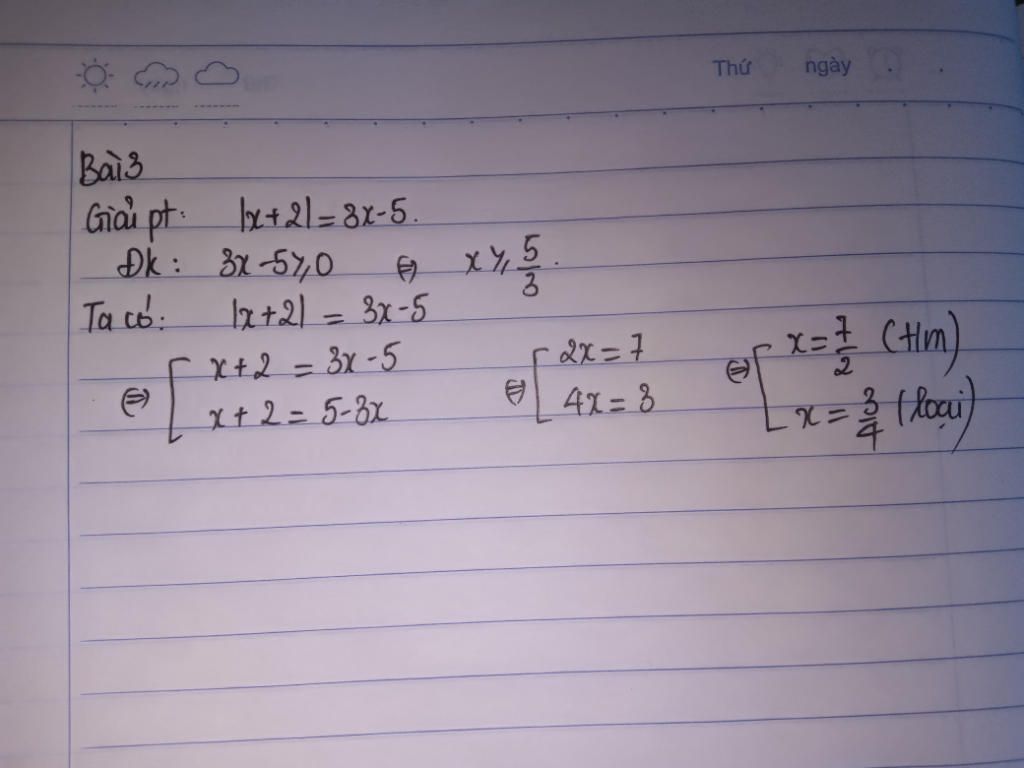 Thứ ngày
Bài 3
Giải pt: |x+2| = 3x-5.
Đk: 3x-5 ⩾ 0 ⇔ x ⩾ 5/3.
Ta có: |x+2| = 3x-5
⇔ [ x+2 = 3x-5 ⇔ [ 2x = 7 ⇔ [ x = 7/2 (t/m)
x+2 = 5-3x 4x = 3 x = 3/4 (loại)